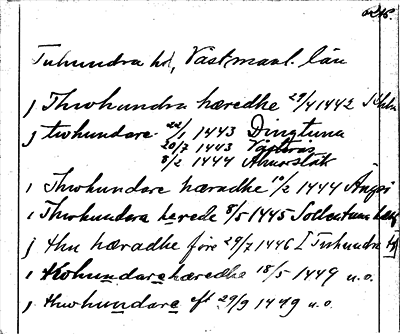 Tuhundra hd, Västmanl. län
j Thwhundra hæredhe 29/4 1442
j twhundare 22/1 1443 Dingtuna
20/7 1443 Västerås
8/2 1444
i Thwhundare hæradhe 10/2 1444 Ängsö
i Thwhundara herede 8/5 1445 Sollentuna
j thu hæradhe före 29/7 1446 [Tuhundra
i twhundara hæredhe 18/5 1449 u.o.
j thwhundare eft 29/9 1449 u.o.